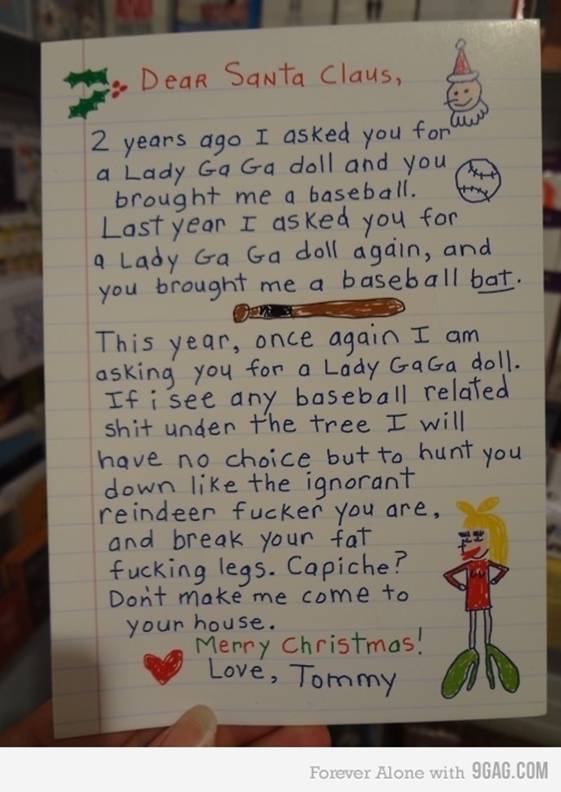 Dear Santa Claus,
2 years ago I asked you for
a Lady Ga Ga doll and you
brought me a baseball.
Last year I asked you for
a Lady Ga Ga doll again, and
you brought me a baseball bat.
This year, once again I am
asking you for a Lady GaGa doll.
If i see any baseball related
shit under the tree I will
have no choice but to hunt you
down like the ignorant
reindeer fucker you are,
and break your fat
fucking legs. Capiche?
Don't make me come to
your house.
Merry Christmas!
Love, Tommy
Forever Alone with 9GAG.COM